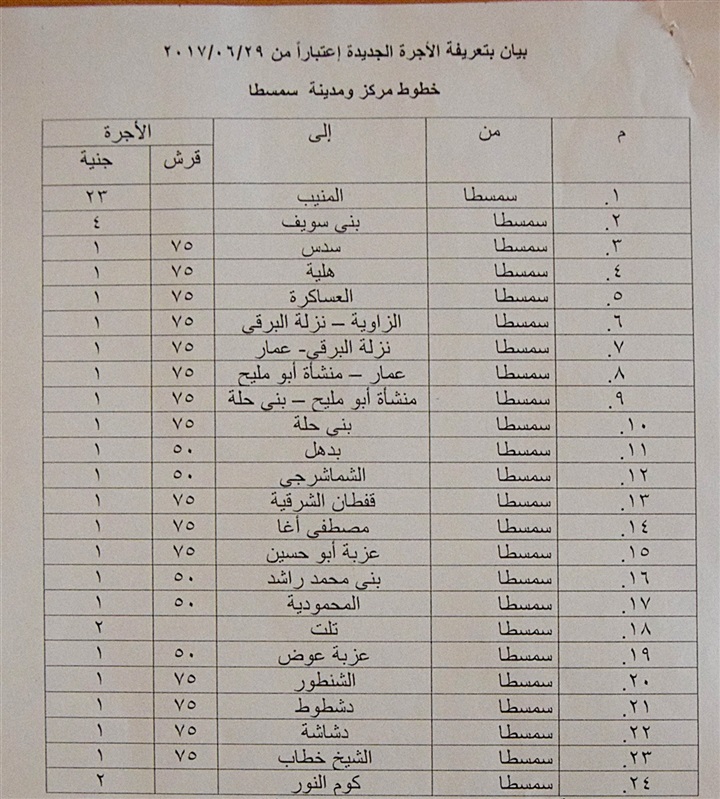 بيان بتعريفة الأجرة الجديدة إعتباراً من ٢٠١٧/٠٦/٢٩
خطوط مركز ومدينة سمسطا
م من إلى الأجرة
قرش جنية
١. سمسطا المنيب ٢٣
٢. سمسطا بنى سويف ٤
٣. سمسطا سدس ٧٥ ١
٤. سمسطا هلية ٧٥ ١
٥. سمسطا العساكرة ٧٥ ١
٦. سمسطا الزاوية – نزلة البرقى ٧٥ ١
٧. سمسطا نزلة البرقى- عمار ٧٥ ١
٨. سمسطا عمار – منشأة أبو مليح ٧٥ ١
٩. سمسطا منشأة أبو مليح – بنى حلة ٧٥ ١
١٠. سمسطا بنى حلة ٧٥ ١
١١. سمسطا بدهل ٥٠ ١
١٢. سمسطا الشماشرجى ٥٠ ١
١٣. سمسطا قفطان الشرقية ٧٥ ١
١٤. سمسطا مصطفى أغا ٧٥ ١
١٥. سمسطا عزبة أبو حسين ٧٥ ١
١٦. سمسطا بنى محمد راشد ٥٠ ١
١٧. سمسطا المحمودية ٥٠ ١
١٨. سمسطا تلت ٢
١٩. سمسطا عزبة عوض ٥٠ ١
٢٠. سمسطا الشنطور ٧٥ ١
٢١. سمسطا دشطوط ٧٥ ١
٢٢. سمسطا دشاشة ٧٥ ١
٢٣. سمسطا الشيخ خطاب ٧٥ ١
٢٤. سمسطا كوم النور ٢